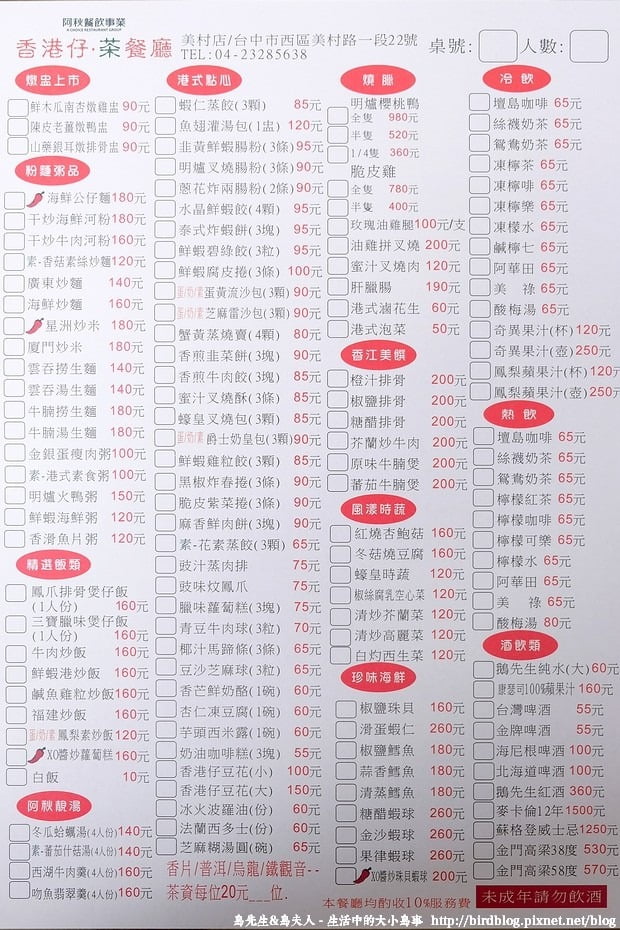 阿秋餐飲事業
A CHOICE RESTAURANT GROUP
香港仔·茶餐廳
美村店/台中市西區美村路一段22號
TEL:04-23285638
桌號:
人數:
燉盅上市
鮮木瓜南杏燉雞盅 90元
陳皮老薑燉鴨盅 90元
山藥銀耳燉排骨盅 90元
粉麵粥品
海鮮公仔麵180元
干炒海鮮河粉180元
干炒牛肉河粉160元
素-香菇素絲炒麵120元
廣東炒麵 140元
海鮮炒麵 160元
星洲炒米 180元
廈門炒米 180元
雲吞撈生麵 140元
雲吞湯生麵 140元
牛腩撈生麵 180元
牛腩湯生麵 180元
金銀蛋瘦肉粥100元
素-港式素食粥100元
明爐火鴨粥 150元
鮮蝦海鮮粥 120元
香滑魚片粥 120元
精選飯類
鳳爪排骨煲仔飯
(1人份) 160元
三寶臘味煲仔飯
(1人份) 160元
牛肉炒飯 160元
鮮蝦港炒飯 160元
鹹魚雞粒炒飯160元
福建炒飯 160元
蛋/奶/素 鳳梨素炒飯120元
XO醬炒蘿蔔糕160元
白飯 10元
阿秋靚湯
冬瓜蛤蠣湯(4人份)140元
素-蕃茄什菇湯(4人份)140元
西湖牛肉羹(4人份)160元
吻魚翡翠羹(4人份)160元
港式點心
蝦仁蒸餃(3顆) 85元
魚翅灌湯包(1盅) 120元
韭黃鮮蝦腸粉(3條)95元
明爐叉燒腸粉(3條)90元
蔥花炸兩腸粉(2條)90元
水晶鮮蝦餃(4顆) 95元
泰式炸蝦餅(3塊) 95元
鮮蝦碧綠餃(3粒) 95元
鮮蝦腐皮捲(3條) 100元
蛋/奶/素 蛋黃流沙包(3顆)90元
蛋/奶/素 芝麻雷沙包(3顆)90元
蟹黃蒸燒賣(4顆) 80元
香煎韭菜餅(3塊) 90元
香煎牛肉餃(3塊) 85元
蜜汁叉燒酥(3條) 85元
蠔皇叉燒包(3顆) 85元
蛋/奶/素 爵士奶皇包(3顆)90元
鮮蝦雞粒餃(3顆) 85元
黑椒炸春捲(3條) 90元
脆皮紫菜捲(3條) 90元
麻香鮮肉餅(3塊) 90元
素-花素蒸餃(3顆)65元
豉汁蒸肉排 75元
豉味炆鳳爪 75元
臘味蘿蔔糕(3塊) 75元
青豆牛肉球(3粒) 70元
椰汁馬蹄條(3條) 65元
豆沙芝麻球(3粒) 65元
香芒鮮奶酪(1碗) 60元
杏仁凍豆腐(1碗) 60元
芋頭西米露(1碗) 60元
奶油咖啡糕(3塊) 55元
香港仔豆花(小) 100元
香港仔豆花(大) 150元
冰火波羅油(份) 60元
法蘭西多士(份) 60元
芝麻糊湯圓(碗) 65元
香片/普洱/烏龍/鐵觀音--
茶資每位20元___位.
燒臘
明爐櫻桃鴨
全隻 980元
半隻 520元
1/4隻 360元
脆皮雞
全隻 780元
半隻 400元
玫瑰油雞腿100元/支
油雞拼叉燒 200元
蜜汁叉燒肉 120元
肝臘腸 190元
港式滷花生 60元
港式泡菜 50元
香江美饌
橙汁排骨 200元
椒鹽排骨 200元
糖醋排骨 200元
芥蘭炒牛肉 200元
原味牛腩煲 200元
蕃茄牛腩煲 200元
風漾時蔬
紅燒杏鮑菇 160元
冬菇燒豆腐 160元
蠔皇時蔬 120元
椒絲腐乳空心菜 120元
清炒芥蘭菜 120元
清炒高麗菜 120元
白灼西生菜 120元
珍味海鮮
椒鹽珠貝 160元
滑蛋蝦仁 260元
椒鹽鱈魚 180元
蒜香鱈魚 180元
清蒸鱈魚 180元
糖醋蝦球 260元
金沙蝦球 260元
果律蝦球 260元
XO醬炒珠貝蝦球 200元
本餐廳均酌收10%服務費
冷飲
壇島咖啡 65元
絲襪奶茶 65元
鴛鴦奶茶 65元
凍檸茶 65元
凍檸啡 65元
凍檸樂 65元
凍檬水 65元
鹹檸七 65元
阿華田 65元
美祿 65元
酸梅湯 65元
奇異果汁(杯)120元
奇異果汁(壺)250元
鳳梨蘋果汁(杯)120元
鳳梨蘋果汁(壺)250元
熱飲
壇島咖啡 65元
絲襪奶茶 65元
鴛鴦奶茶 65元
檸檬紅茶 65元
檸檬咖啡 65元
檸檬可樂 65元
檸檬水 65元
阿華田 65元
美祿 65元
酸梅湯 80元
酒飲類
鵝先生純水(大)60元
康瑟司100%蘋果汁 160元
台灣啤酒 55元
金牌啤酒 55元
海尼根啤酒 100元
北海道啤酒 100元
鵝先生紅酒 360元
麥卡倫12年1500元
蘇格登威士忌1250元
金門高梁38度 530元
金門高梁58度 570元
未成年請勿飲酒
鳥先生&鳥夫人 - 生活中的大小鳥事 http://birdblog.pixnet.net/blog